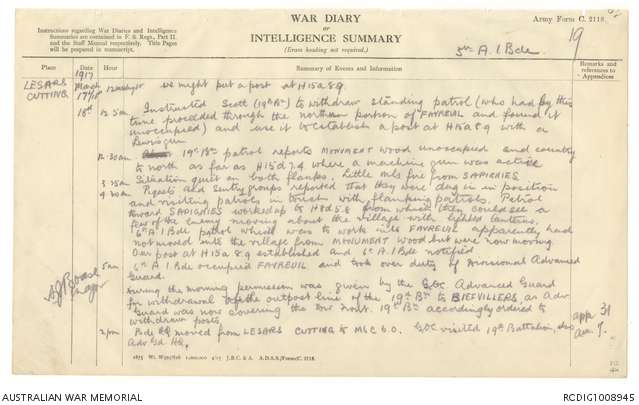 Army Form C. 2118.
WAR DIARY
or
INTELLIGENCE SUMMARY
(Erase heading not required.)
Instructions regarding War Diaries and Intelligence
Summaries are contained in F. S. Regs., Part II.
and the Staff Manual respectively. Title Pages
will be prepared in manuscript.
5th A.I. Bde.
19
Place Date Hour Summary of Events and Information Remarks and references to Appendices
LESARS CUTTING 1917 March 17/18 12 midnight we might put a post at H15a8.9.
18th 12.5am Instructed Scott (19th Bn) to withdraw standing patrol (who had by this
time proceeded through the northern portion of FAVREUIL and found it
unoccupied) and use it to establish a post at H15a8.9 with a
Lewis gun.
12.30am 19th Bn patrol reports MONUMENT Wood unoccupied and country
to north as far as H15d7.4 where a machine gun was active
3.15am Situation quiet on both flanks. Little M.G. fire from SAPIGNIES
4.30am Piquets and Sentry groups reported that they were dug in in position
and visiting patrols in touch with flanking patrols. Patrol
toward SAPIGNIES worked up to H8d5.8 from which they could see a
few of the enemy moving about the village with lights lanterns.
6th A.I. Bde patrol which was to work into FAVREUIL apparently had
not moved into the village from MONUMENT Wood but were now moving.
Our post at H15a.8.9 established and 6th A.I. Bde notified
5am 6th A.I. Bde occupied FAVREUIL and took over duty of Divisional Advanced
Guard.
During the morning permission was given by the G.O.C. Advanced Guard
for withdrawal of the outpost line of the 19th Bn to BIEFVILLERS, as Adv.
Guard was now covering the Div. front. 19th Bn accordingly ordered to
withdraw posts.
2pm Bde HQ moved from LESARS CUTTING to M6C6.0. GOC visited 19th Battalion, also
Adv Gd HQ.
app 31
Major
1875 Wt. W593/826 1,000,000 4/15 J.B.C. & A. A.D.S.S./Forms/C. 2118.
AUSTRALIAN WAR MEMORIAL
RCDIG1008945